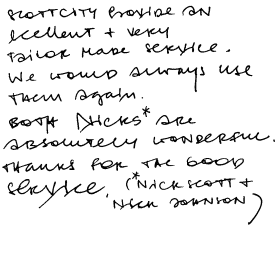 SCOTTCITY PROVIDE AN
EXCELLENT + VERY
TAILOR MADE SERVICE.
WE WOULD ALWAYS USE
THEM AGAIN.
BOTH NICKS* ARE
ABSOLUTELY WONDERFUL.
THANKS FOR THE GOOD
SERVICE. (*NICK SCOTT +
NICK JOHNSON)